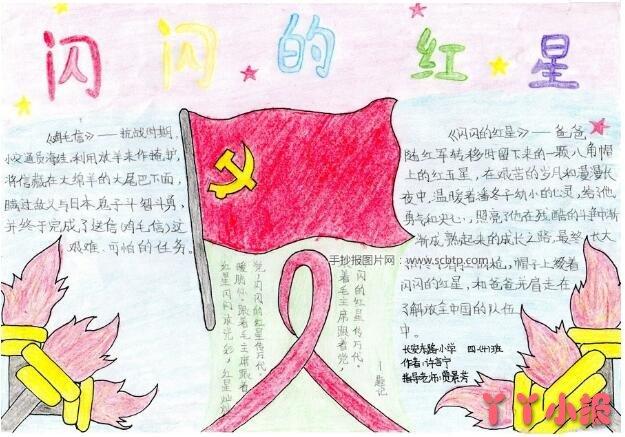 闪闪的红星
《鸡毛信》——抗战时期,
小交通员海娃,利用放羊来作掩护,
将信藏在大绵羊的大尾巴下面,
随过敌义与日本鬼子斗智斗勇,
并终于完成了送信(鸡毛信)这
艰难、可怕的任务。
《闪闪的红星》——爸爸
随红军转移时留下来的一颗八角帽
上的红五星,在艰苦的岁月和漫漫长
夜中,温暖着潘冬子幼小的心灵,给了他
勇气和决心,照亮了他在残酷的斗争中渐
渐成熟起来的成长之路,最终长大
闪闪的红星,和爸爸并肩走在
了解放全中国的队伍
中。
手抄报图片网:www.scbtp.com
闪闪的红星传万代,
着毛主席跟着党,
党,闪闪的红星传万代。
暖胸怀。跟着毛主席跟着
红星闪闪放光彩,红星灿灿
长安东路小学 四·(4)班
作者:许若宁
指导老师:贾景芳
丫丫小报